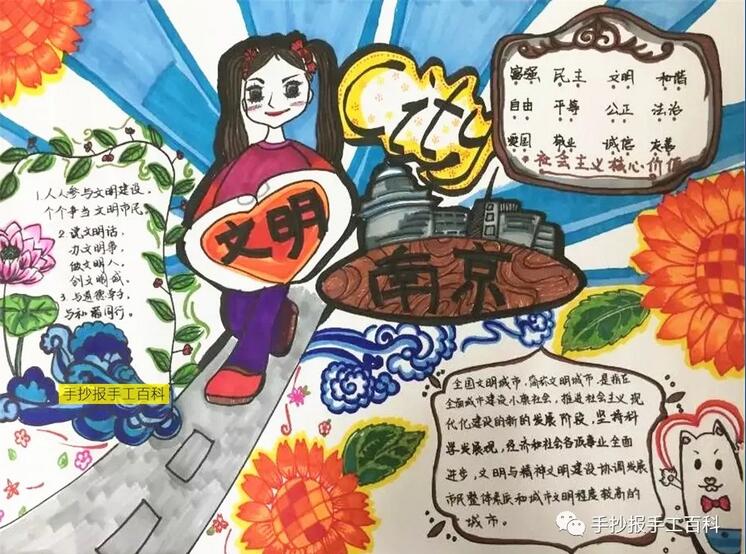 City
富强 民主 文明 和谐
自由 平等 公正 法治
爱国 敬业 诚信 友善
社会主义核心价值
1.人人参与文明建设,
个个争当文明市民。
2.说文明话,
办文明事,
做文明人,
创文明城。
3.与道德牵手,
与和谐同行。
文明
南京
手抄报手工百科
全国文明城市,简称文明城市,是指在
全面城市建设小康社会,推进社会主义现
代化建设的新的发展阶段,坚持科
学发展观,经济和社会各项事业全面
进步,文明与精神文明建设协调发展
市民整体素质和城市文明程度较高的
城市。
手抄报手工百科